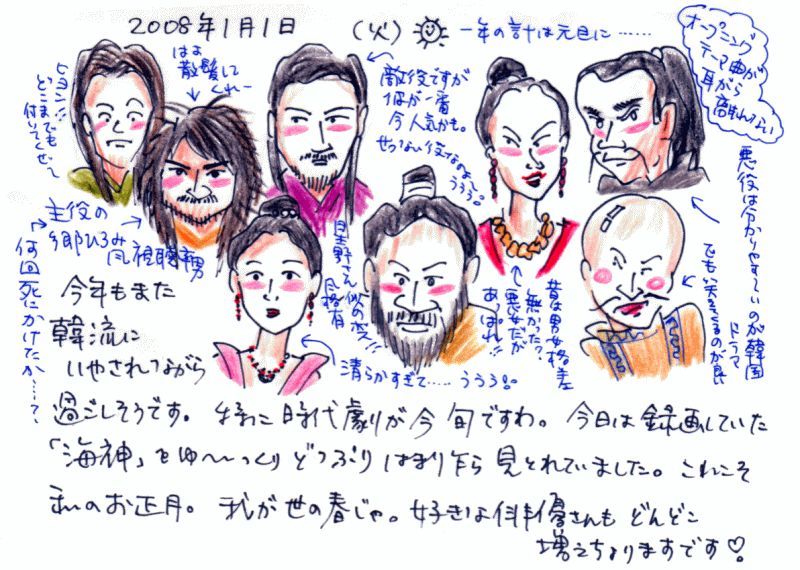 2008年1月1日 (火)
一年の計は元旦に……
オープニング
テーマ曲が
耳から
離れない
はよ
散髪して
くれー
ヒョン!!
どこまでも
付いてくぜって
敵役ですが
何が一番
今人気かも。
せつない役なのよ
うぅぅ。
主役の
郷ひろみ
風視聴男
何回死にかけたか……?
星野さん似のボス!!
風格有
昔は男女格差
無かった?
悪女だが
あっぱれ!!
悪役は分かりやす〜いのが韓国
ドラマ
でも笑えるのが良
清らかすぎて……うぅぅ。
今年もまた
韓流に
いやされながら
過ごしそうです。特に時代劇が今旬ですわ。今日は録画していた
「海神」をゆ〜っくりどっぷりはまり乍ら見とれていました。これこそ
私のお正月。我が世の春じゃ。好きな俳優さんもどんどこ
増えちょりますです♡。